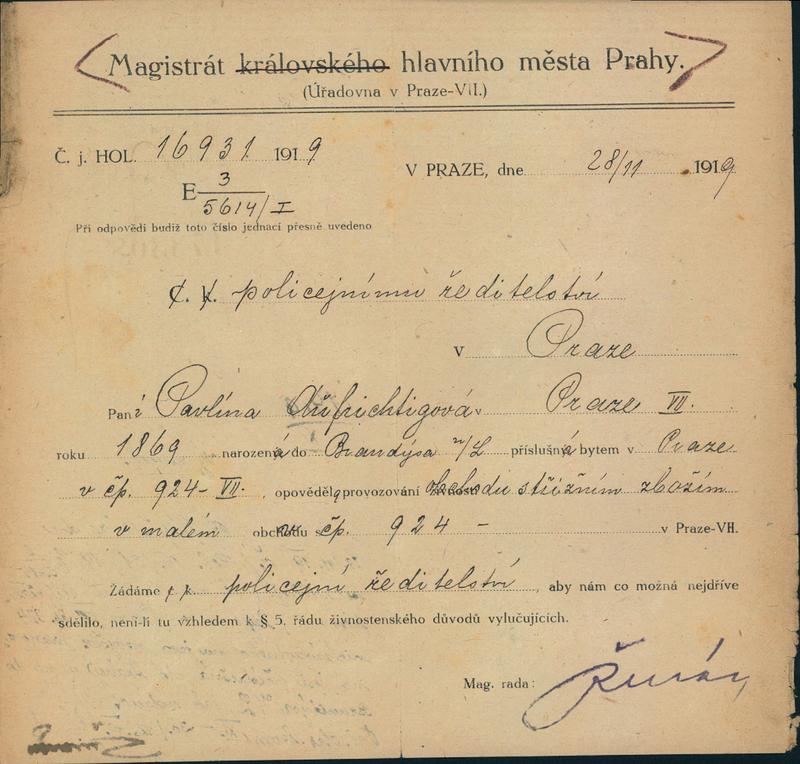 Magistrát královského hlavního města Prahy.
(Úřadovna v Praze-VII.)
Č. j. HOL. 16931 1919
V PRAZE, dne 28/11 1919
E 3
5614/I
Při odpovědi budiž toto číslo jednací přesně uvedeno
c. k. policejnímu ředitelství
v Praze
Paní Pavlína Aufrichtigová v Praze VII.
roku 1869 narozená do Brandýsa n/L příslušná bytem v Praze
v čp. 924-VII. opověděla provozování živnosti obchodu střižním zbožím
v malém obchodu s čp. 924 - v Praze-VII.
Žádáme c. k. policejní ředitelství, aby nám co možná nejdříve
sdělilo, není-li tu vzhledem k § 5. řádu živnostenského důvodů vylučujících.
Mag. rada: